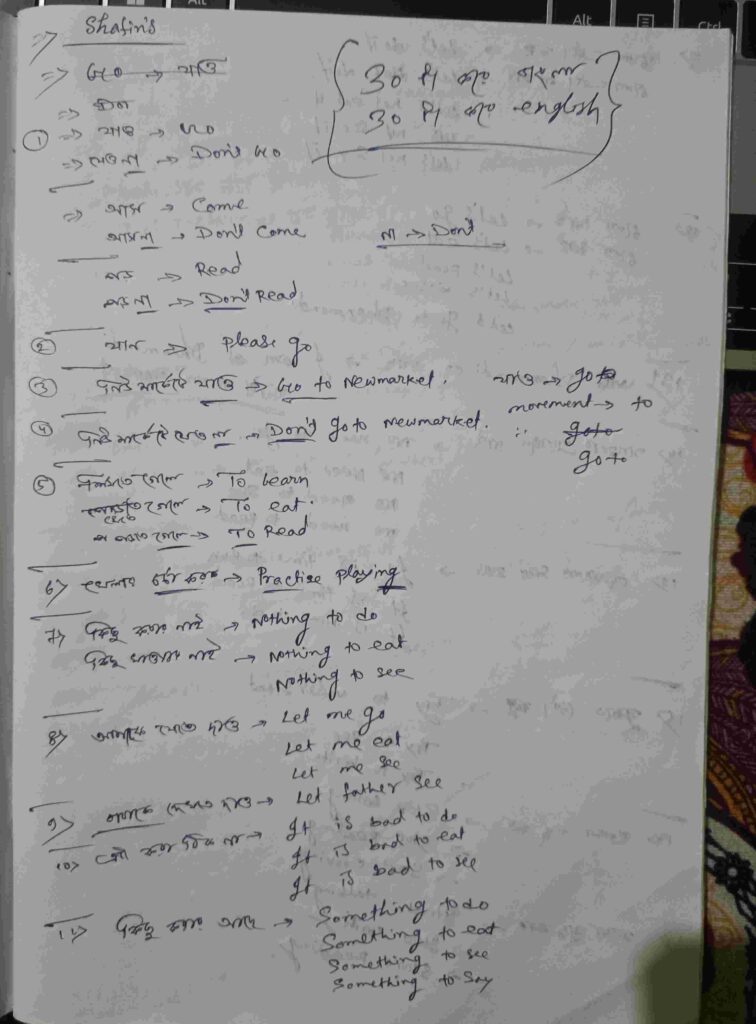 ⇒ Shafin's
⇒ Go → যাও
{ 30 টা করে বাংলা
30 টা করে english }
⇒
① ⇒ যাও → Go
⇒ যেও না → Don't Go
⇒ আস → Come
আস না → Don't Come
না → Don't
পড় → Read
পড় না → Don't Read
② যান ⇒ please go
③ নিউ মার্কেটে যাও → Go to Newmarket.
যাও → go
movement → to
④ নিউ মার্কেটে যেও না → Don't go to newmarket.
∴ goto
go to
⑤ শিখতে গেলে → To Learn
খেতে গেলে → To eat.
পড়তে গেলে → To Read
6) খেলার চর্চা করা → Practise playing
7) কিছু করার নাই → Nothing to do
কিছু খাওয়ার নাই → Nothing to eat
Nothing to see
8) আমাকে যেতে দাও → Let me go
Let me eat
Let me see
9) বাবাকে দেখতে দাও → Let father see
10) এটা করা ঠিক না → It is bad to do
It is bad to eat
It is bad to see
11) কিছু করার আছে → Something to do
Something to eat
Something to see
Something to say